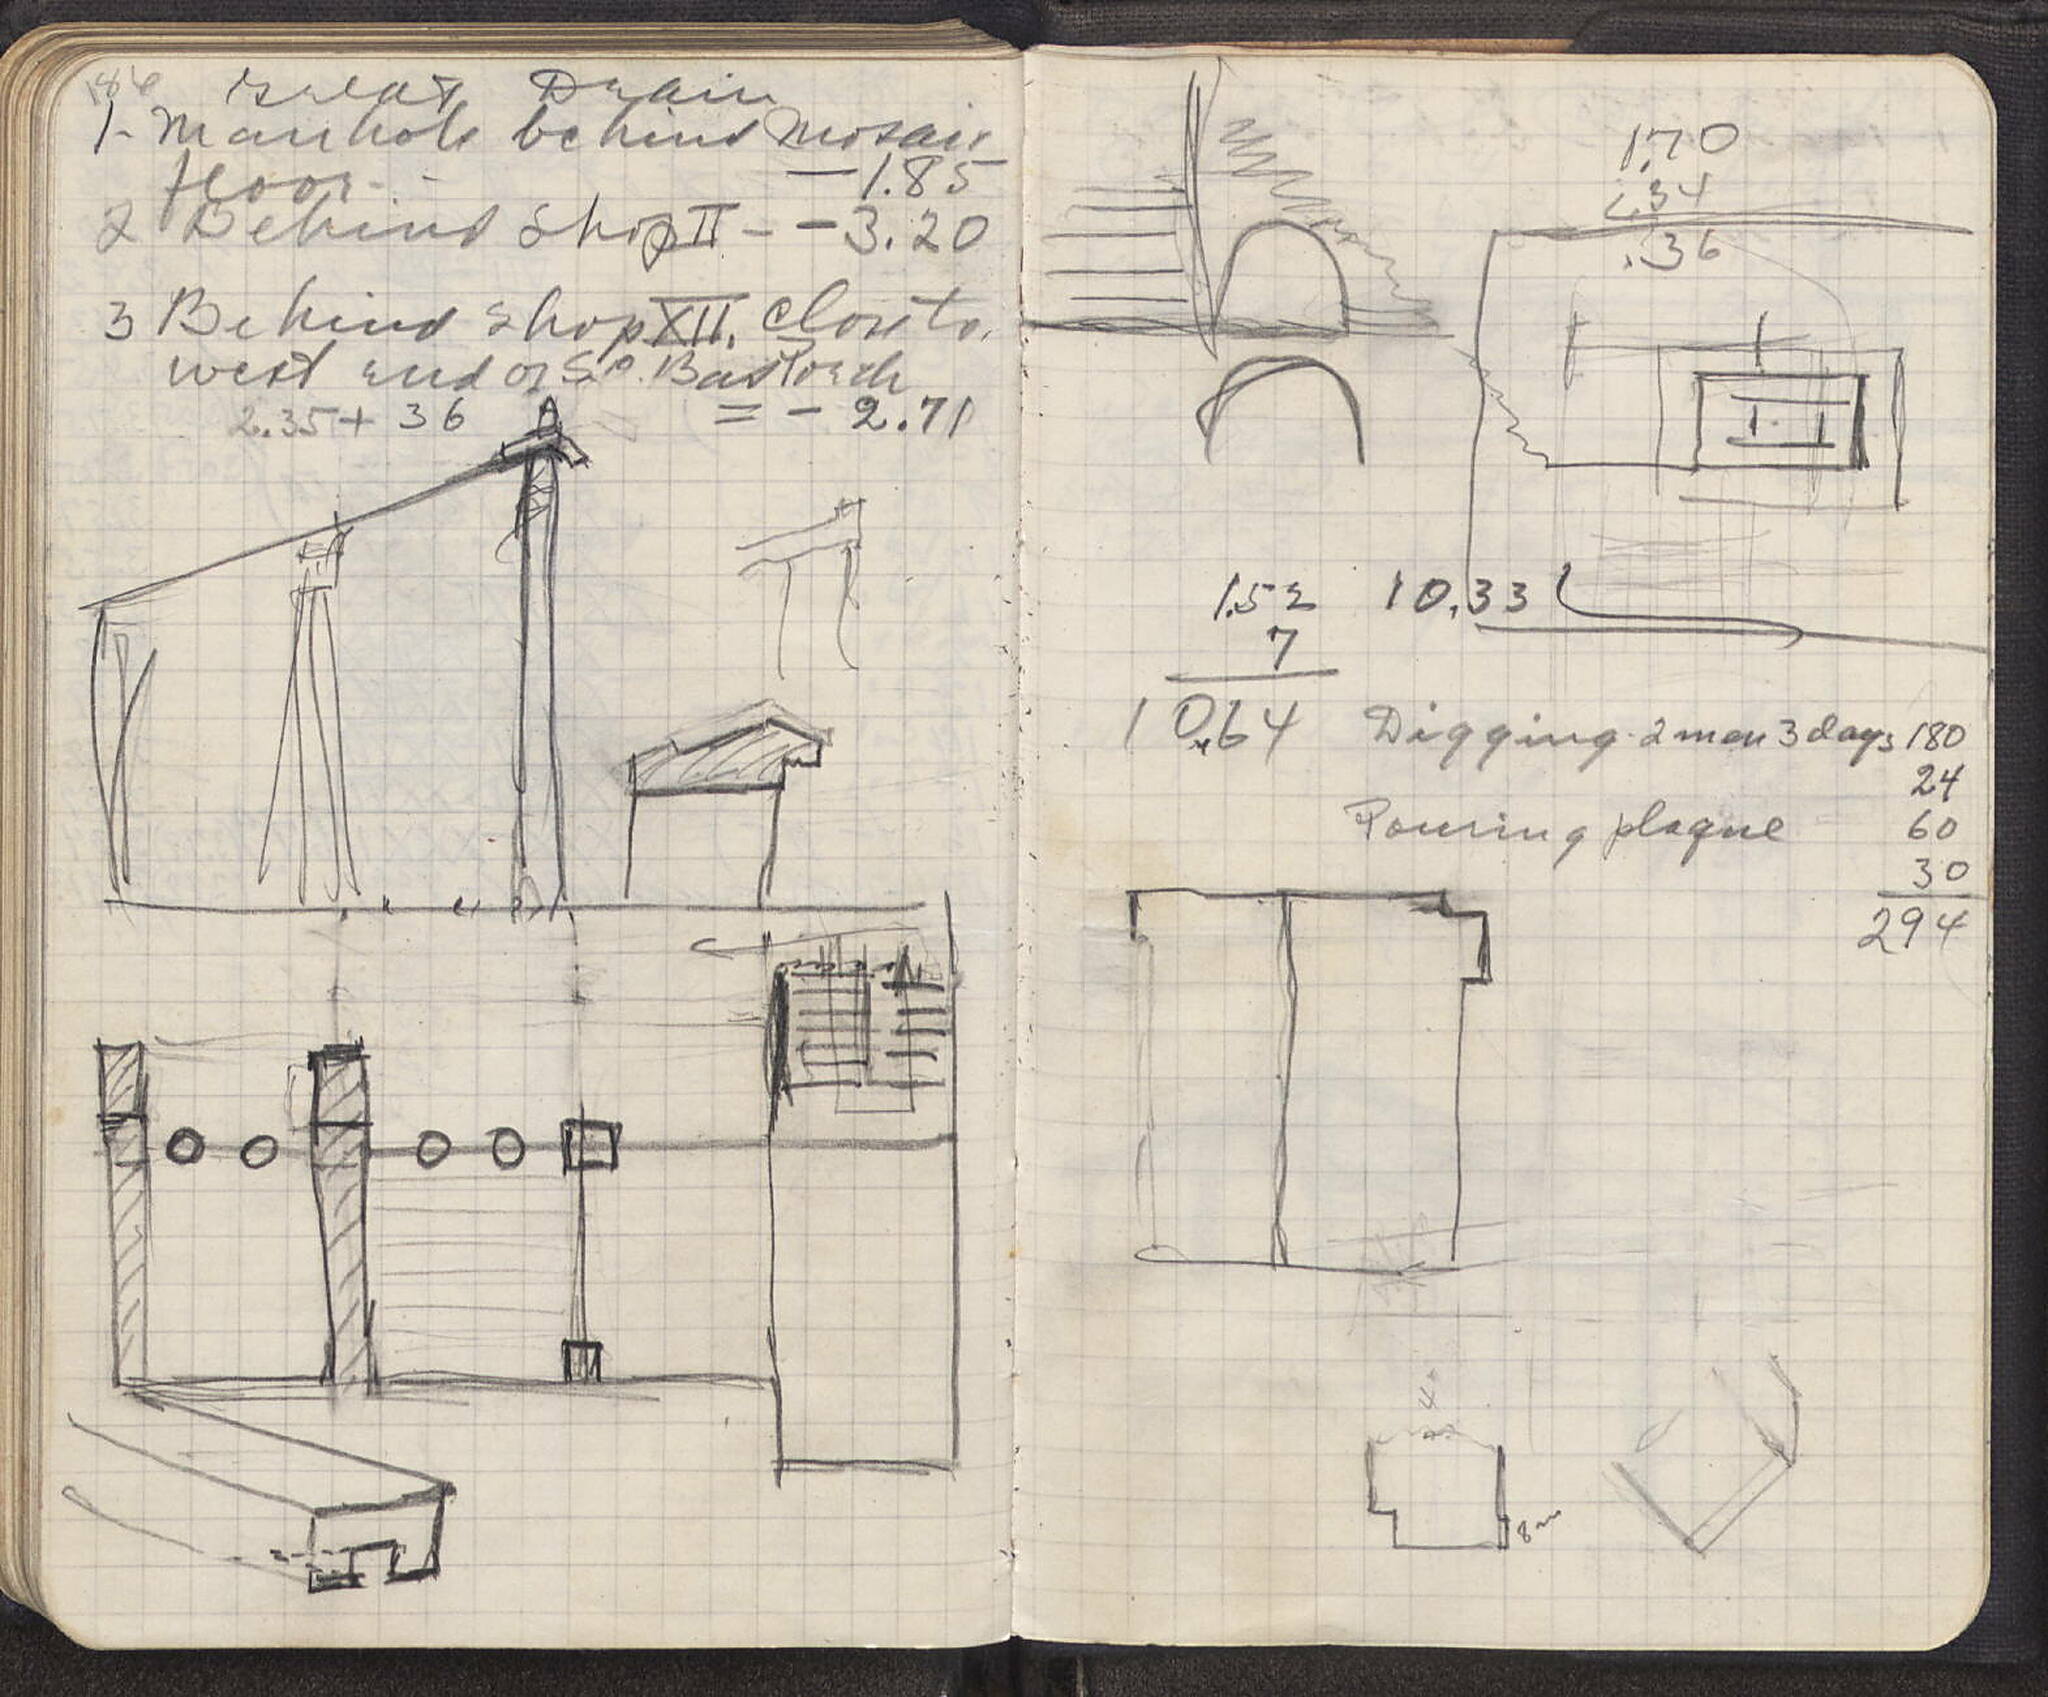 Great Drain
1- Manhole behind Mosaic
floor - - — 1.85
2 Behind Shop II - - 3.20
3 Behind Shop XII. Close to
west end of So. Bas Porch
2.35 + 36 = - 2.71
1.70
.34
.36
1.52 10.33
7
10.64 Digging 2 men 3 days 180
24
Pouring plaque 60
30
294
4
8 m